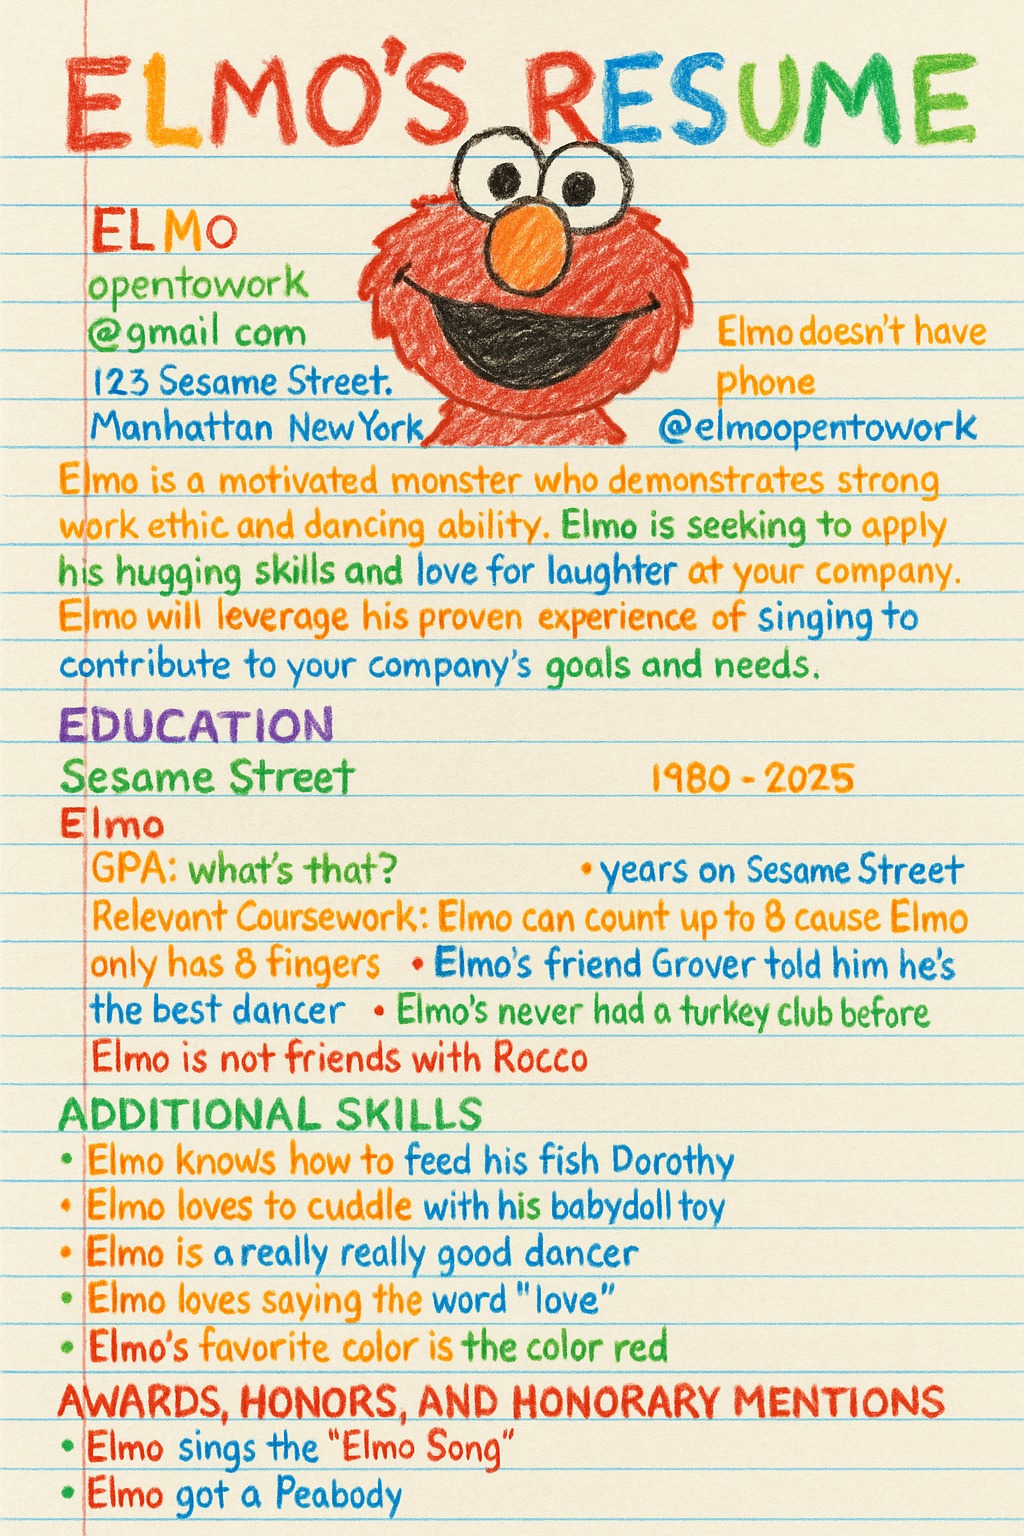 ELMO'S RESUME
ELMO
opentowork
@gmail com
123 Sesame Street.
Manhattan New York
Elmo doesn't have
phone
@elmoopentowork
Elmo is a motivated monster who demonstrates strong
work ethic and dancing ability. Elmo is seeking to apply
his hugging skills and love for laughter at your company.
Elmo will leverage his proven experience of singing to
contribute to your company's goals and needs.
EDUCATION
Sesame Street 1980 - 2025
Elmo
GPA: what's that? • years on Sesame Street
Relevant Coursework: Elmo can count up to 8 cause Elmo
only has 8 fingers • Elmo's friend Grover told him he's
the best dancer • Elmo's never had a turkey club before
Elmo is not friends with Rocco
ADDITIONAL SKILLS
• Elmo knows how to feed his fish Dorothy
• Elmo loves to cuddle with his babydoll toy
• Elmo is a really really good dancer
• Elmo loves saying the word "love"
• Elmo's favorite color is the color red
AWARDS, HONORS, AND HONORARY MENTIONS
• Elmo sings the "Elmo Song"
• Elmo got a Peabody